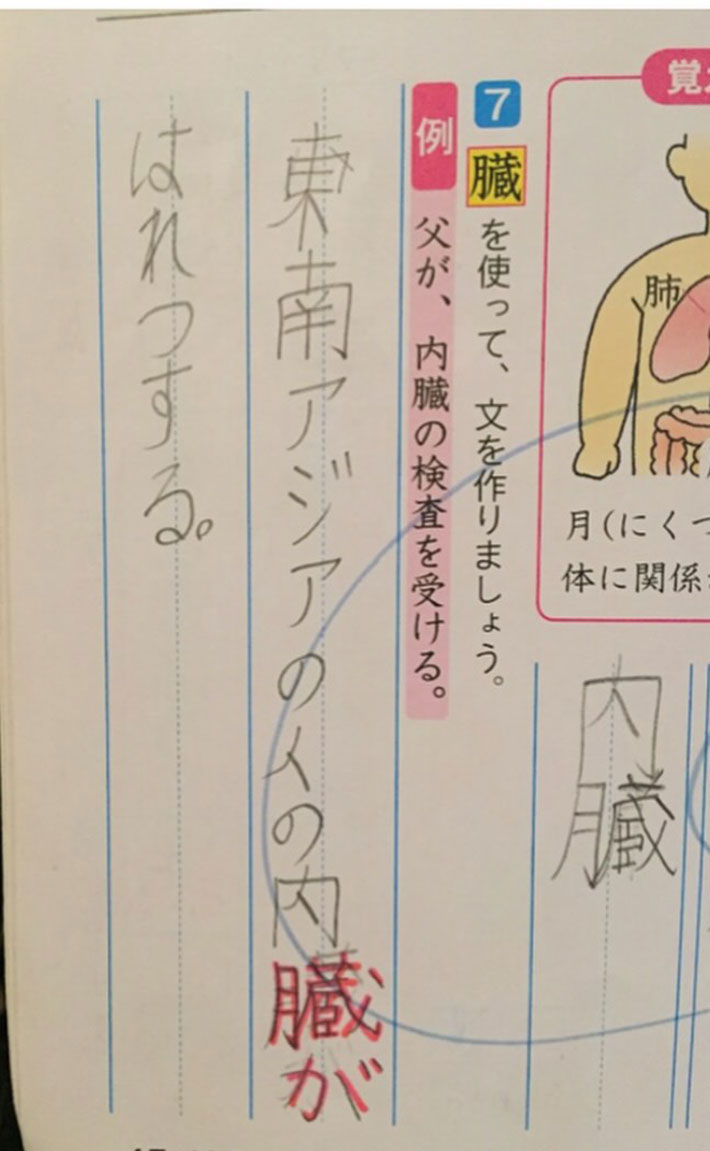 覚
肺
月(にくつ
体に関係
7 臓を使って、文を作りましょう。
例 父が、内臓の検査を受ける。
内臓
東南アジアの人の内臓が
はれつする。